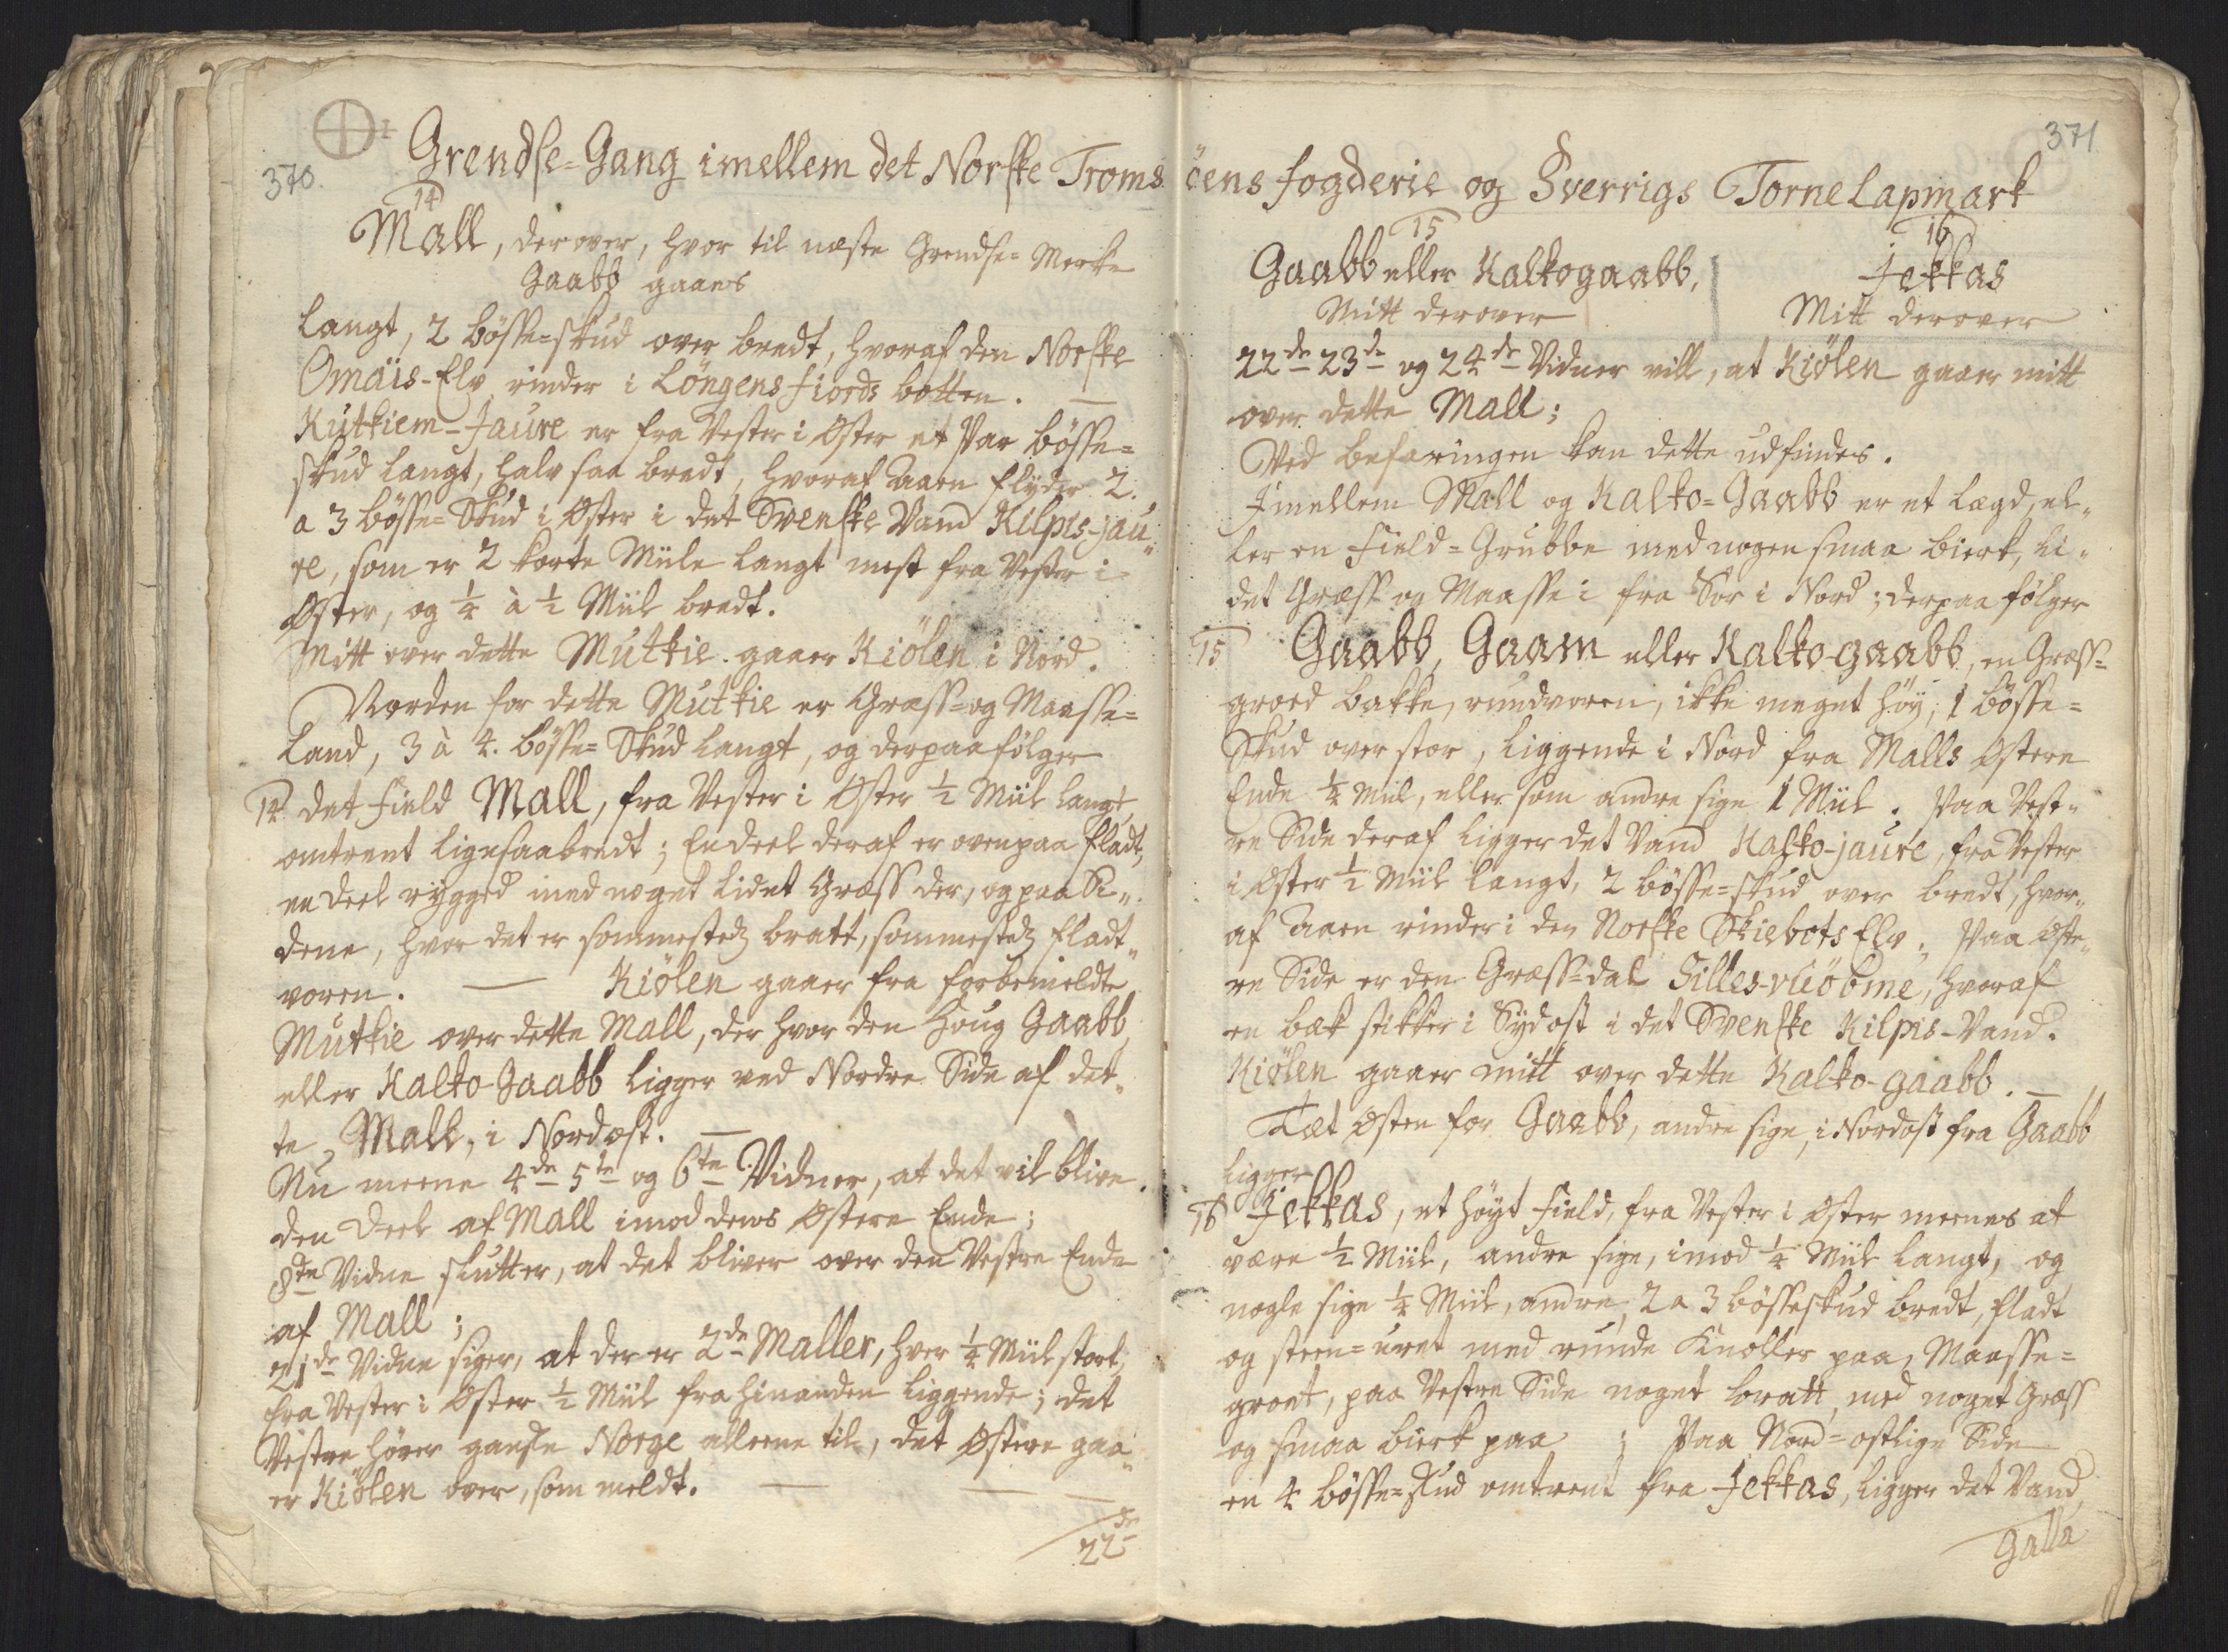 370.
Grendse-Gang imellem det Norske Troms
14
Mall, derover, hvor til næste Grendse-Merke
Gaabb gaaes
langt, 2 bösse-skud over bredt, hvoraf den Norske
Omäis-Elv rinder i Löngens fiords botten. —
Kutkiem-Jaure er fra Vester i Øster et Par bösse-
skud langt, halv saa bredt, hvoraf Aaen flyder 2.
a 3 bösse-Skud i Øster i det Svenske Vand Kilpis-jau„
re, som er 2 korte Miile langt mest fra Vester i
Øster, og ¼ à ½ Miil bredt.
Mitt over dette Mutkie gaaer Kiölen i Nord.
Norden for dette Mutkie er Græss- og Maasse-
Land, 3 à 4. bösse-Skud langt, og derpaa følger
14 det Field Mall, fra Vester i Øster ½ Miil langt,
omtrent ligesaabredt; Endeel deraf er ovenpaa fladt,
en deel rygged med noget lidet Græss der, og paa Si„
dene, hvor det er sommestedz bratt, sommestedz fladt„
voren. — Kiölen gaaer fra forbemeldte
Mutkie over dette Mall, der hvor den Houg Gaabb
eller Kalko-Gaabb ligger ved Nordre Side af det„
te Mall, i Nordost. —
Nu meene 4de 5te og 6te Vidner, at det vil blive
den Deel af Mall imod dens Østere Ende;
8de Vidne slutter, at det bliver over den Vestre Ende
af Mall;
21de Vidne siger, at der er 2de Maller, hver ¼ Miil stort,
fra Vester i Øster ½ Miil fra hinanden liggende; det
Vestre hører ganske Norge alleene til, det Østere gaa„
er Kiölen over, som meldt. —
22de
371
öens fogderie og Sverrigs Torne Lapmark
15
Gaabb eller Kalkogaabb,
Mitt derover
16
Jekkas
Mitt derover
22de 23de og 24de Vidner vill, at Kiölen gaaer mitt
over dette Mall;
Ved befaringen kan dette udfindes.
Imellem Mall og Kalko-Gaabb er et Lægd, el„
ler en Field-Grubbe med nogen smaa bierk, li„
det Græss og Maasse i fra Sør i Nord; derpaa følger
15 Gaabb, Gaam eller Kalko-gaabb, en Græss-
groed bakke, rundvoren, ikke meget høy, 1 bösse-
Skud over stor, liggende i Nord fra Malls Østere
Ende ¼ Miil, eller som andre sige 1 Miil. Paa Vest„
re Side deraf ligger det Vand Kalko-jaure, fra Vester
i Øster ½ Miil langt, 2 bösse-skud over bredt, hvor„
af Aaen rinder i den Norske Skiebots Elv; Paa Øste„
re Side er den Græss-dal Tilles-vuöbme, hvoraf
en bæk stikker i Sydost i det Svenske Kilpis-Vand.
Kiölen gaaer mitt over dette Kalko-gaabb. —
Tæt Østen for Gaabb, andre sige, i Nordost fra Gaabb
ligger
16 Jekkas, et høyt Field, fra Vester i Øster meenes at
være ½ Miil, andre sige, imod ¼ Miil langt, og
nogle sige ¼ Miil, andre, 2 a 3 bösseskud bredt, fladt
og steen-uret med runde Knoller paa, Maasse-
groet, paa Vestre Side noget bratt, med noget Græss
og smaa bierk paa; Paa Nord-ostlige Side
en 4 bösse-skud omtrent fra Jekkas, ligger det Vand
Galla